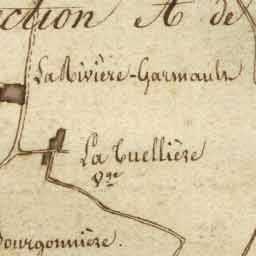 ction A de
La Rivière-Garmault
La Tuellière
Vge
Bourgonnière.